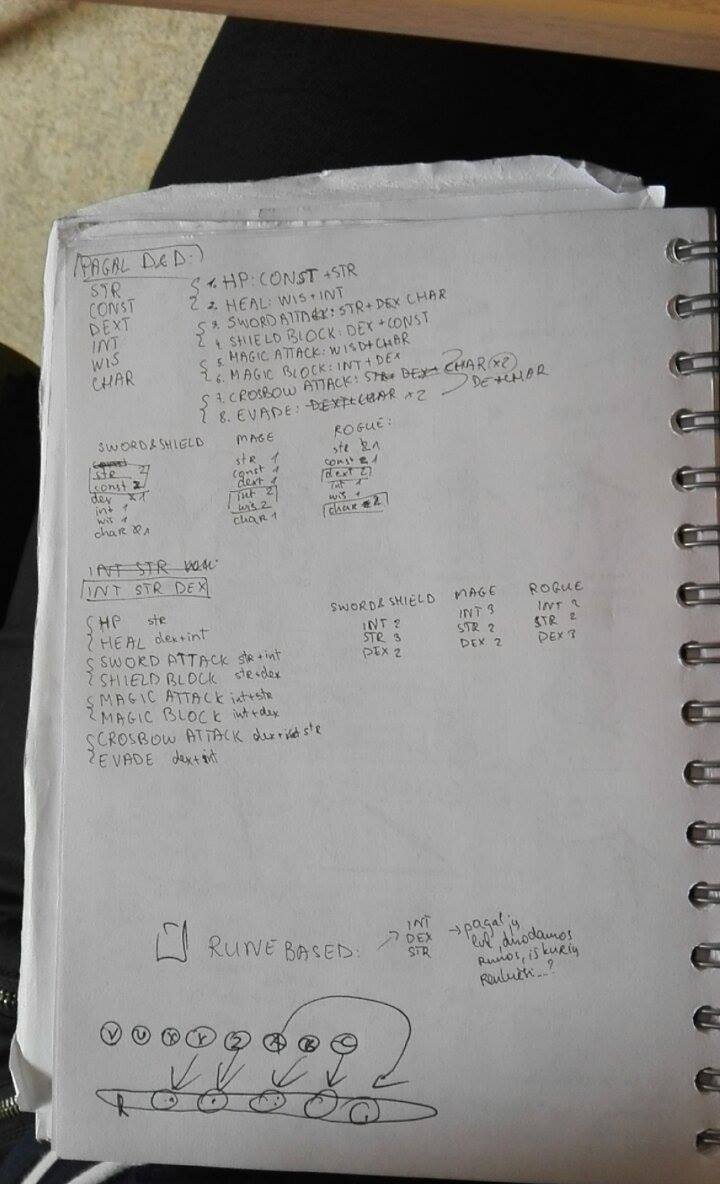 PAGAL D&D:
STR
CONST
DEXT
INT
WIS
CHAR
1. HP: CONST + STR
2. HEAL: WIS + INT
3. SWORD ATTACK: STR + DEX CHAR
4. SHIELD BLOCK: DEX + CONST
5. MAGIC ATTACK: WISD + CHAR
6. MAGIC BLOCK: INT + DEX
7. CROSBOW ATTACK: STR+ DEX+ CHAR (x2)
8. EVADE: DEXT+CHAR x2
DEX+CHAR
SWORD&SHIELD
str 2
const 2
dex 1
int 1
wis 1
char 1
MAGE
str 1
const 1
dext 1
int 2
wis 2
char 1
ROGUE:
str 1
const 1
dext 2
int 1
wis 1
char 2
INT STR
INT STR DEX
HP str
HEAL dex+int
SWORD ATTACK str+int
SHIELD BLOCK str+dex
MAGIC ATTACK int+str
MAGIC BLOCK int+dex
CROSBOW ATTACK dex+int str
EVADE dex+int
SWORD&SHIELD
INT 2
STR 3
DEX 2
MAGE
INT 3
STR 2
DEX 2
ROGUE
INT 2
STR 2
DEX 3
RUNE BASED:
INT
DEX
STR
pagal jų
lvl, duodamos
runos, iš kurių
V U X Y Z A B C
R